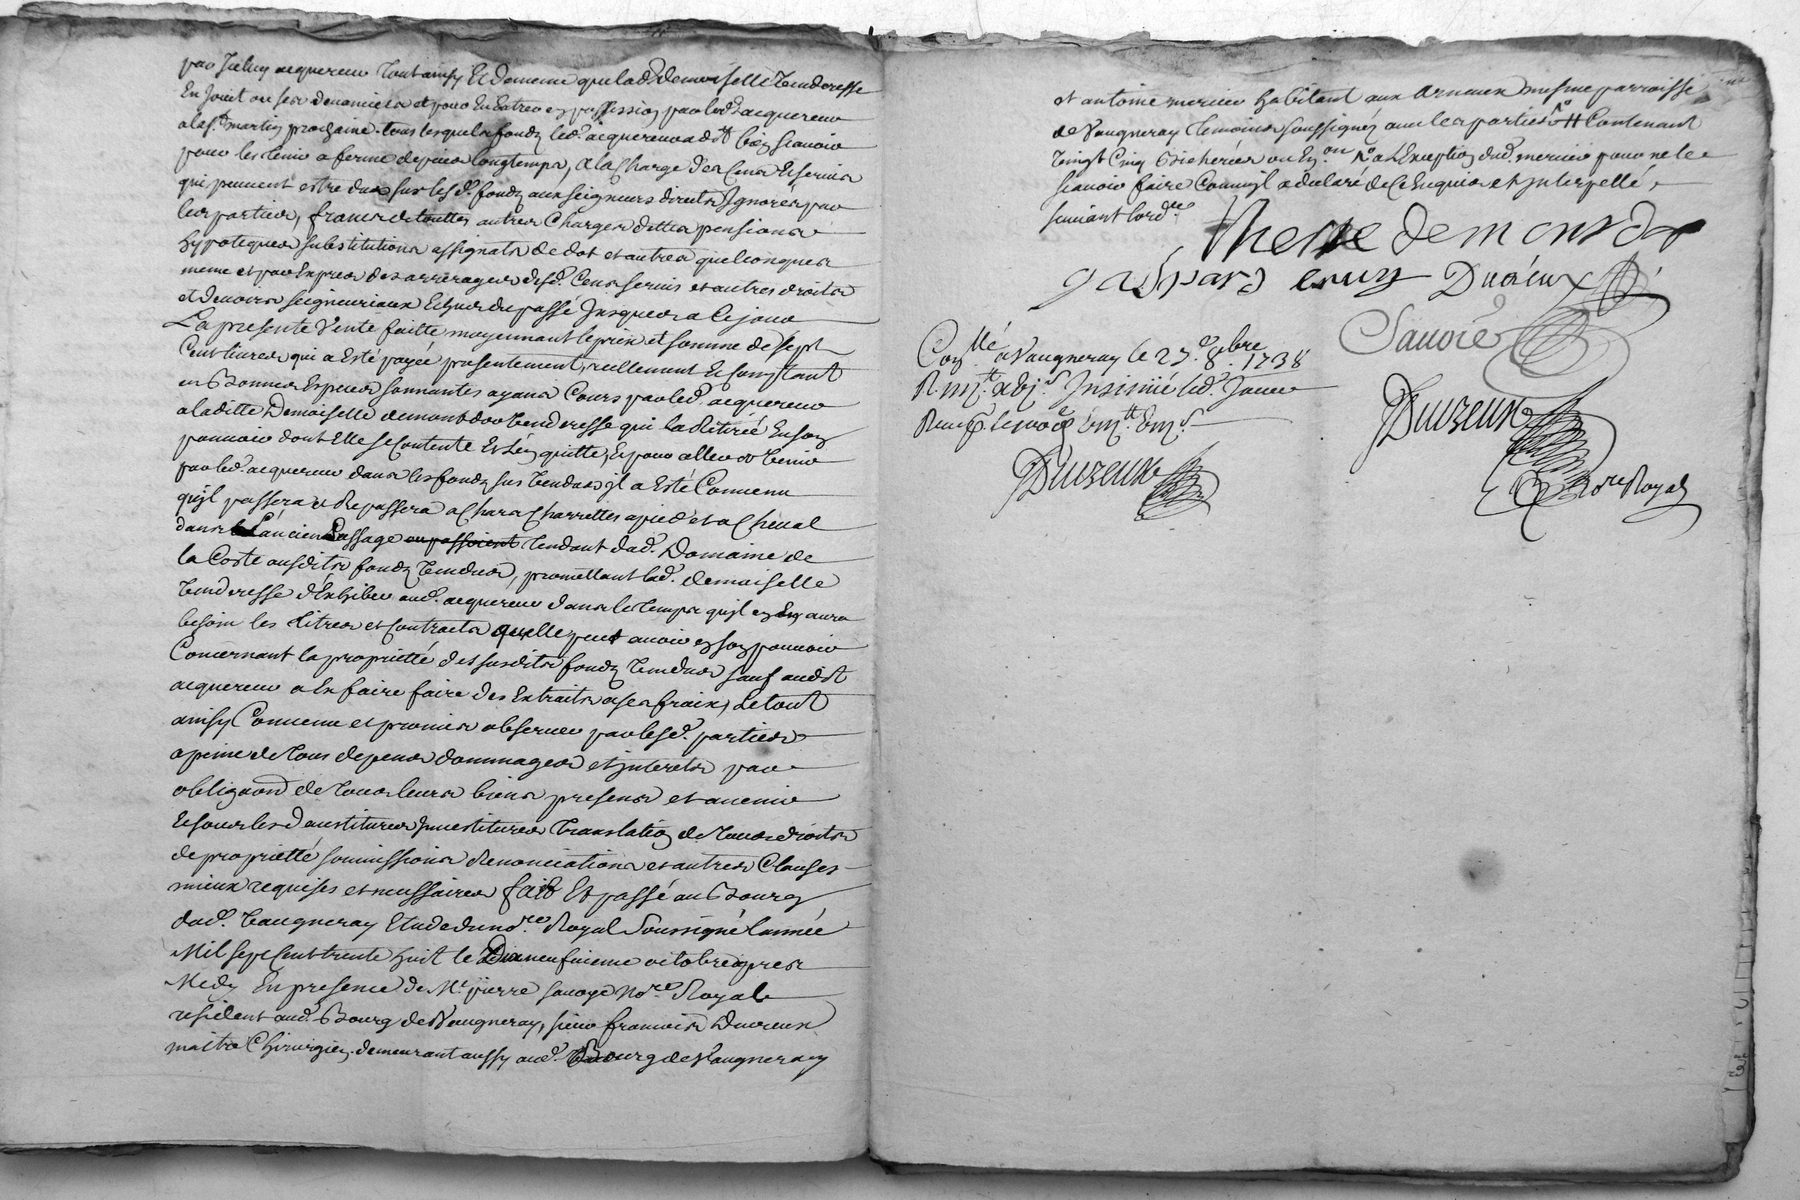 par Iceluy acquereur tout ainsy Et de meme que lad. demoiselle Venderesse
En Jouit ou ses devanciers et pour En Entrer en possession par led. acquereur
a la st. martin prochaine. tous lesquels fonds led. acquereur a dit bien scavoir
pour les tenir a ferme depuis longtemps, a la Charge des Cens Et servis
qui peuvent estre dus sur lesd. fonds aux seigneurs directs Ignorés par
les parties, francs de touttes autres Charges dettes pensions
hypoteques substitutions assignats de dot et autres quelconques
meme et par Exprès des arrerages desd. Cens servis et autres droits
et devoirs seigneuriaux Echus du passé Jusques a Ce jour
La presente Vente faitte moyennant le prix et somme de sept
Cent livres qui a Esté payée presentement, reellement Et Comptant
en Bonnes Especes sonnantes ayans Cours par led. acquereur
a laditte Demoiselle demontdor Venderesse qui la Retirée En son
pouvoir dont Elle se Contente Et L'en quitte, Et pour aller et Venir
par led. acquereur dans les fonds sus Vendus jl a Esté Convenu
qujl passera et Repassera a Chars Charrettes a pied et a Cheval
dans L'ancien Passage ou passoient tendant dud. Domaine de
la Coste ausdits fonds Vendus, promettant lad. demoiselle
Venderesse d'Exhiber aud. acquereur dans le temps qujl en aura
besoin les titres et Contracts quelle peut avoir en son pouvoir
Concernant la proprietté des susdits fonds Vendus sauf audit
acquereur a En faire faire des Extraits a ses fraix, Le tout
ainsy Convenu et promis observer par lesd. parties
a peine de tous depens dommages et jnterets par
obligaon de tous leurs biens presens et avenir
Et sous les devestitures jnvestitures translation de tous droits
de proprietté soumissions Renonciations et autres Clauses
mieux requises et necessaires fait Et passé au Bourg
dud. Vaugneray Etude du no.re Royal Soussigné L'année
Mil sept Cent trente huit le Dixneufvieme octobre apres
Midy En presence de Me. pierre savoye No.re Royal
resident aud. Bourg de Vaugneray, sieur francois Duvreux
maitre Chirurgien demeurant aussy aud. Bourg de Vaugneray
et antoine mercier habitant aux Arneux mesme parroisse
de Vaugneray temoins soussignés avec les parties # Contenant
Vingt Cinq Bicherées ou En.on No. a L'Exception dud. mercier pour ne le
scavoir faire Comme jl a declaré de Ce Enquis et jnterpellé,
suivant l'ord.ce
therese demontdor
gaspard Duvreux
Savoie
Con.llé a Vaugneray le 23.e 8.bre 1738
Duvreux
Duvreux
No.re Royal